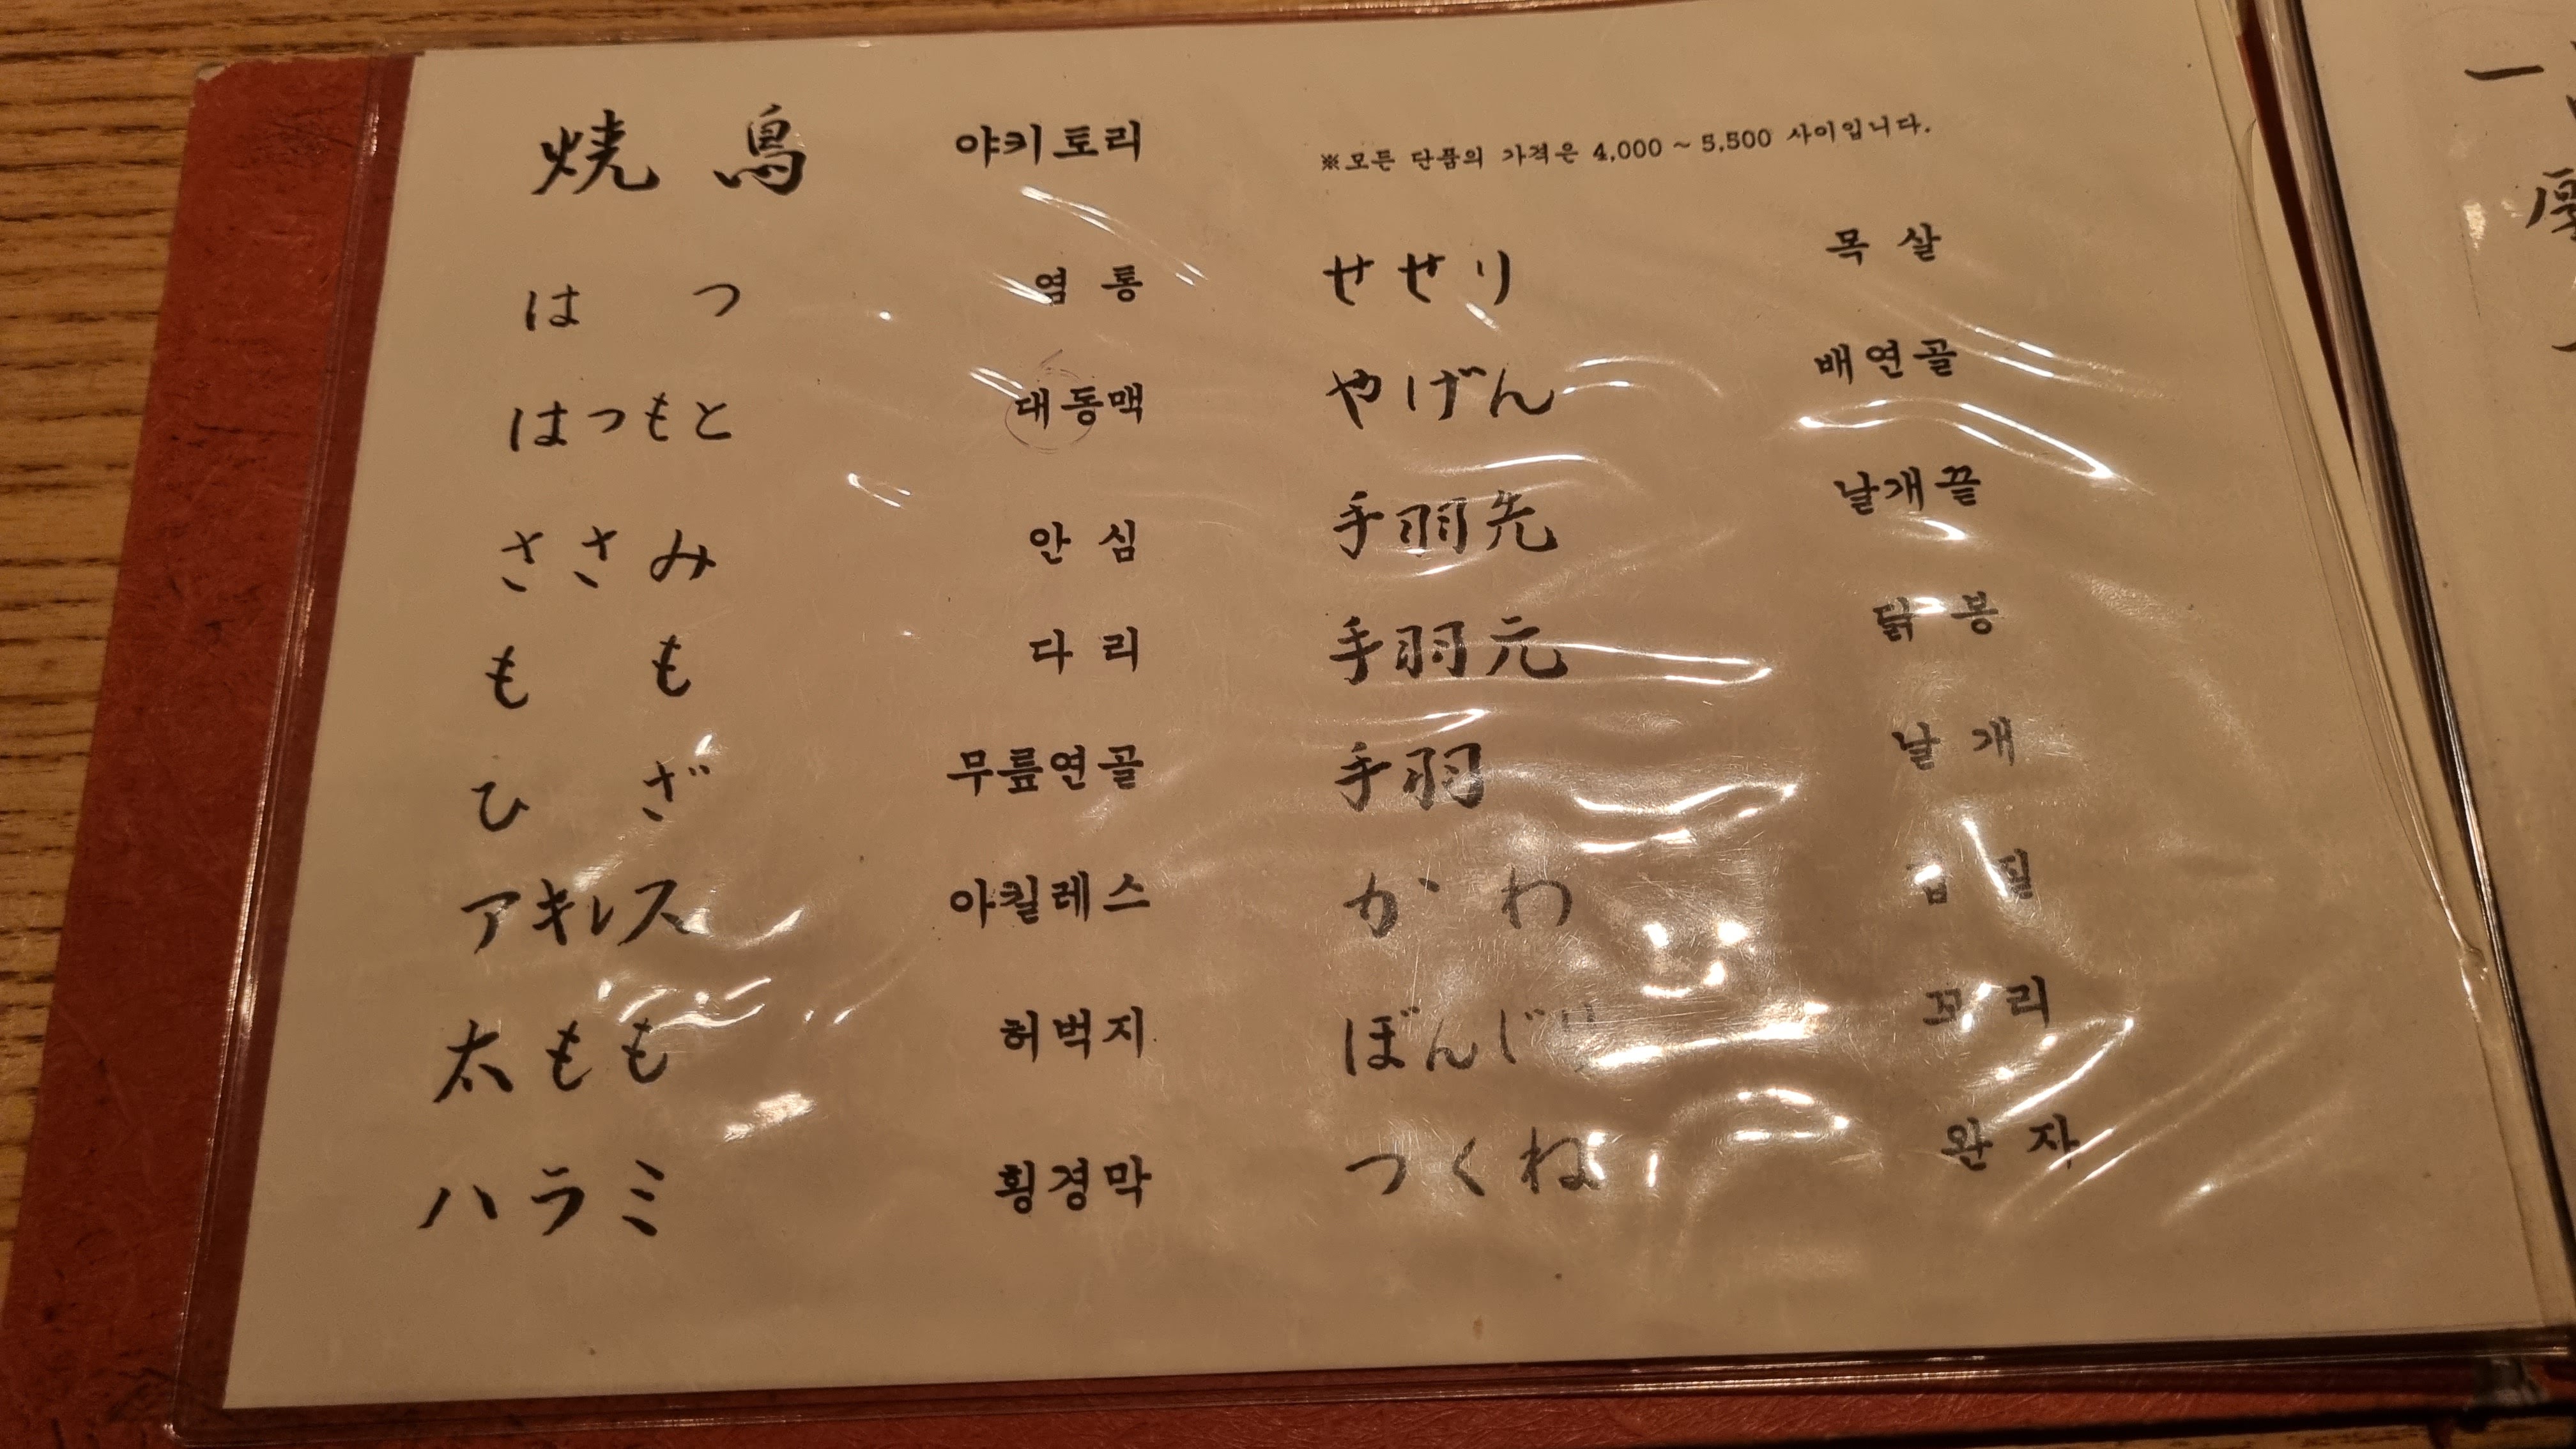 焼鳥 야키토리
※모든 단품의 가격은 4,000 ~ 5,500 사이입니다.
はつ 염통
はつもと 대동맥
ささみ 안심
もも 다리
ひざ 무릎연골
アキレス 아킬레스
太もも 허벅지
ハラミ 횡경막
せせり 목살
やげん 배연골
手羽先 날개끝
手羽元 닭봉
手羽 날개
かわ
ぼんじり 꼬리
つくね 완자